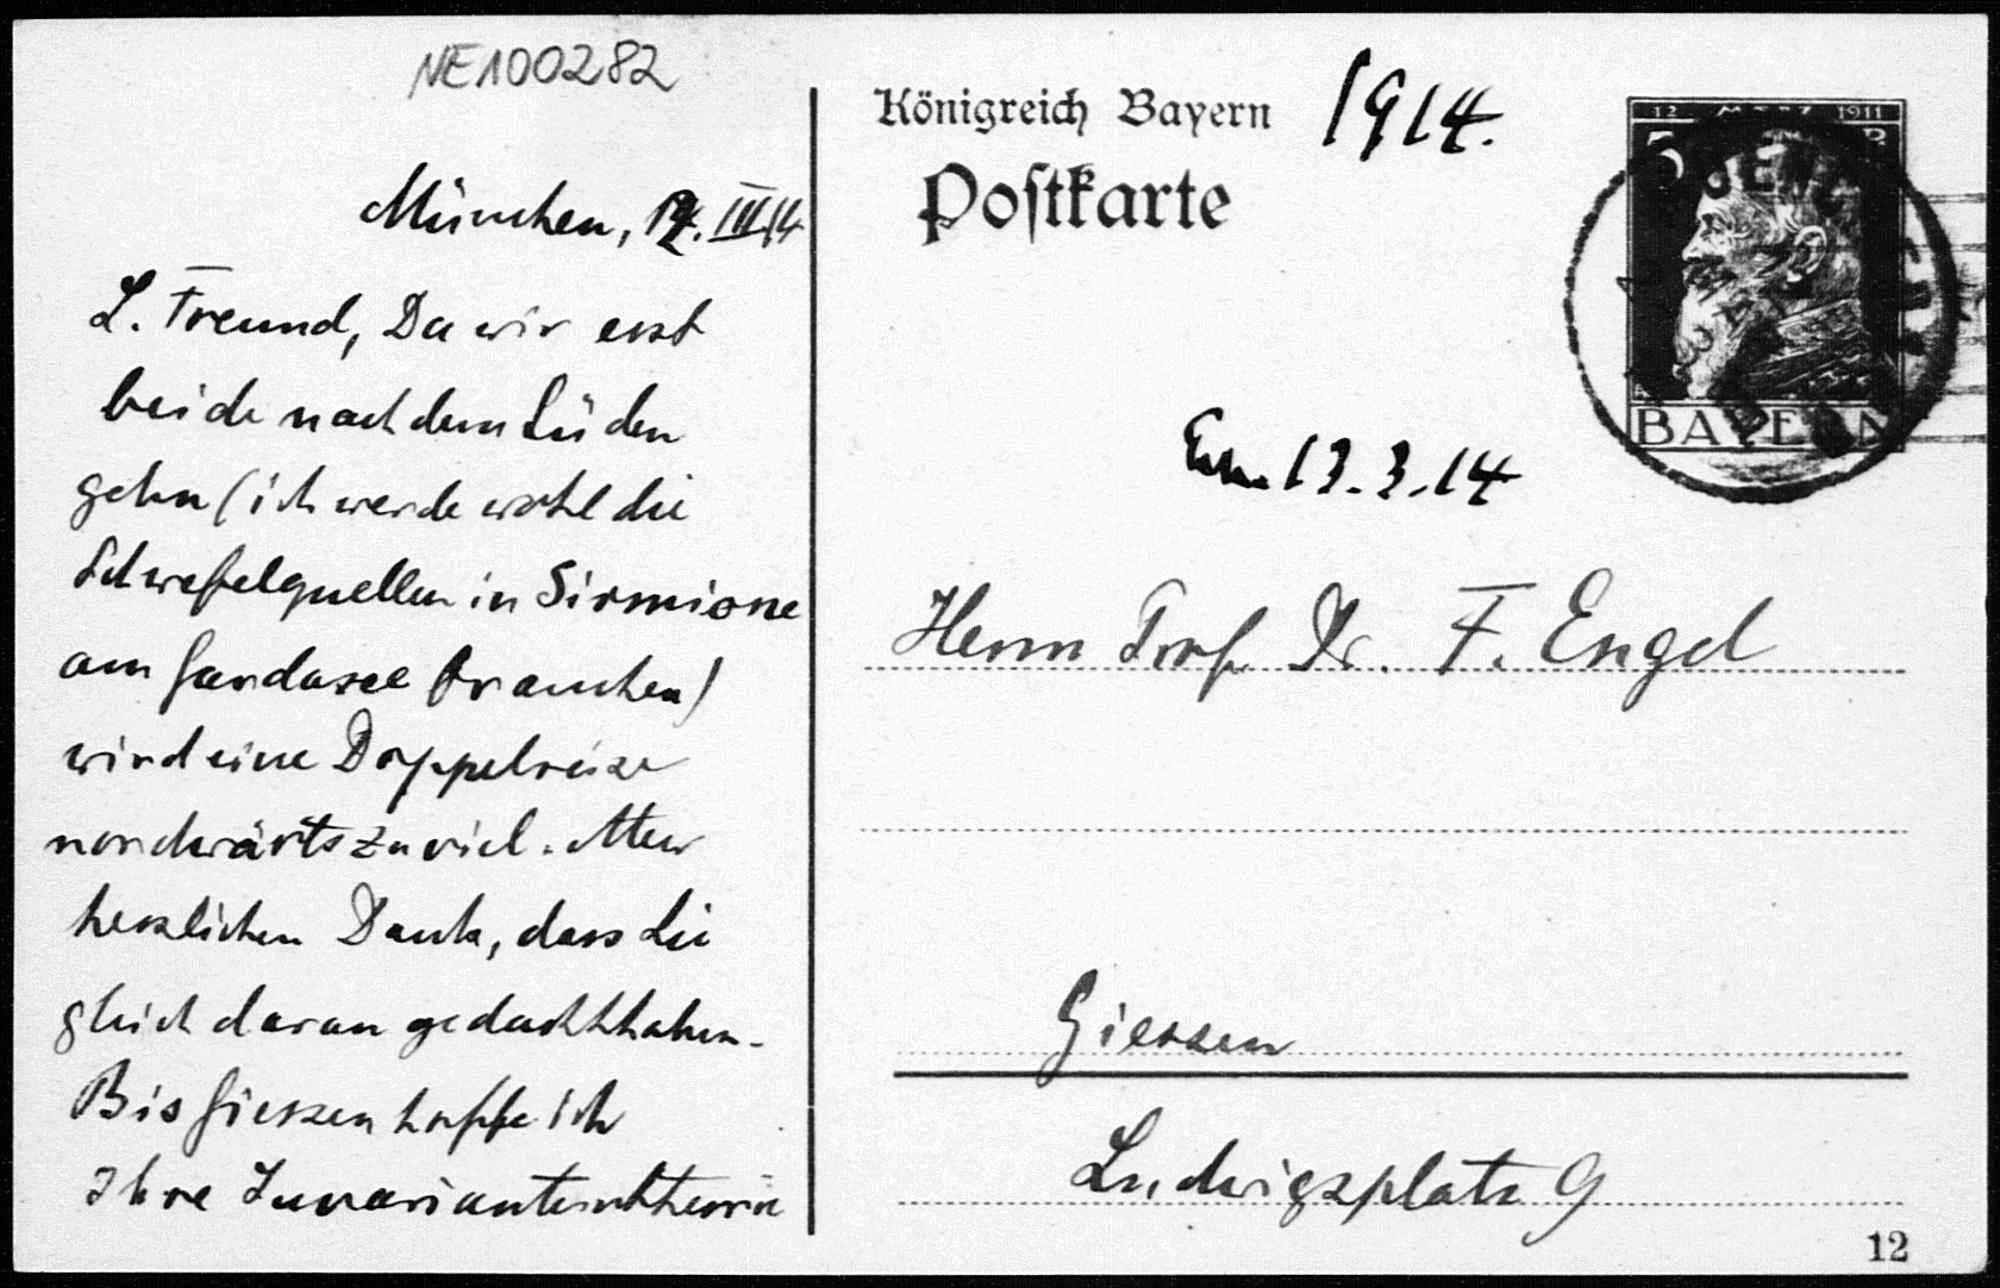 NE100282
München, 12. III 14
L. Freund, Da wir erst
beide nach dem Süden
gehn (ich werde wohl die
Schwefelquellen in Sirmione
am Gardasee brauchen)
wird eine Doppelreise
nordwärts zu viel. Aber
herzlichen Dank, dass Sie
gleich daran gedacht haben.
Bis Giessen hoffe ich
Ihre Invariantentheorie
Königreich Bayern 1914.
Postkarte
12 MÄRZ 1911
5
BAYERN
13.3.14
Herrn Prof. Dr. F. Engel
Giessen
Ludwigsplatz 9
12